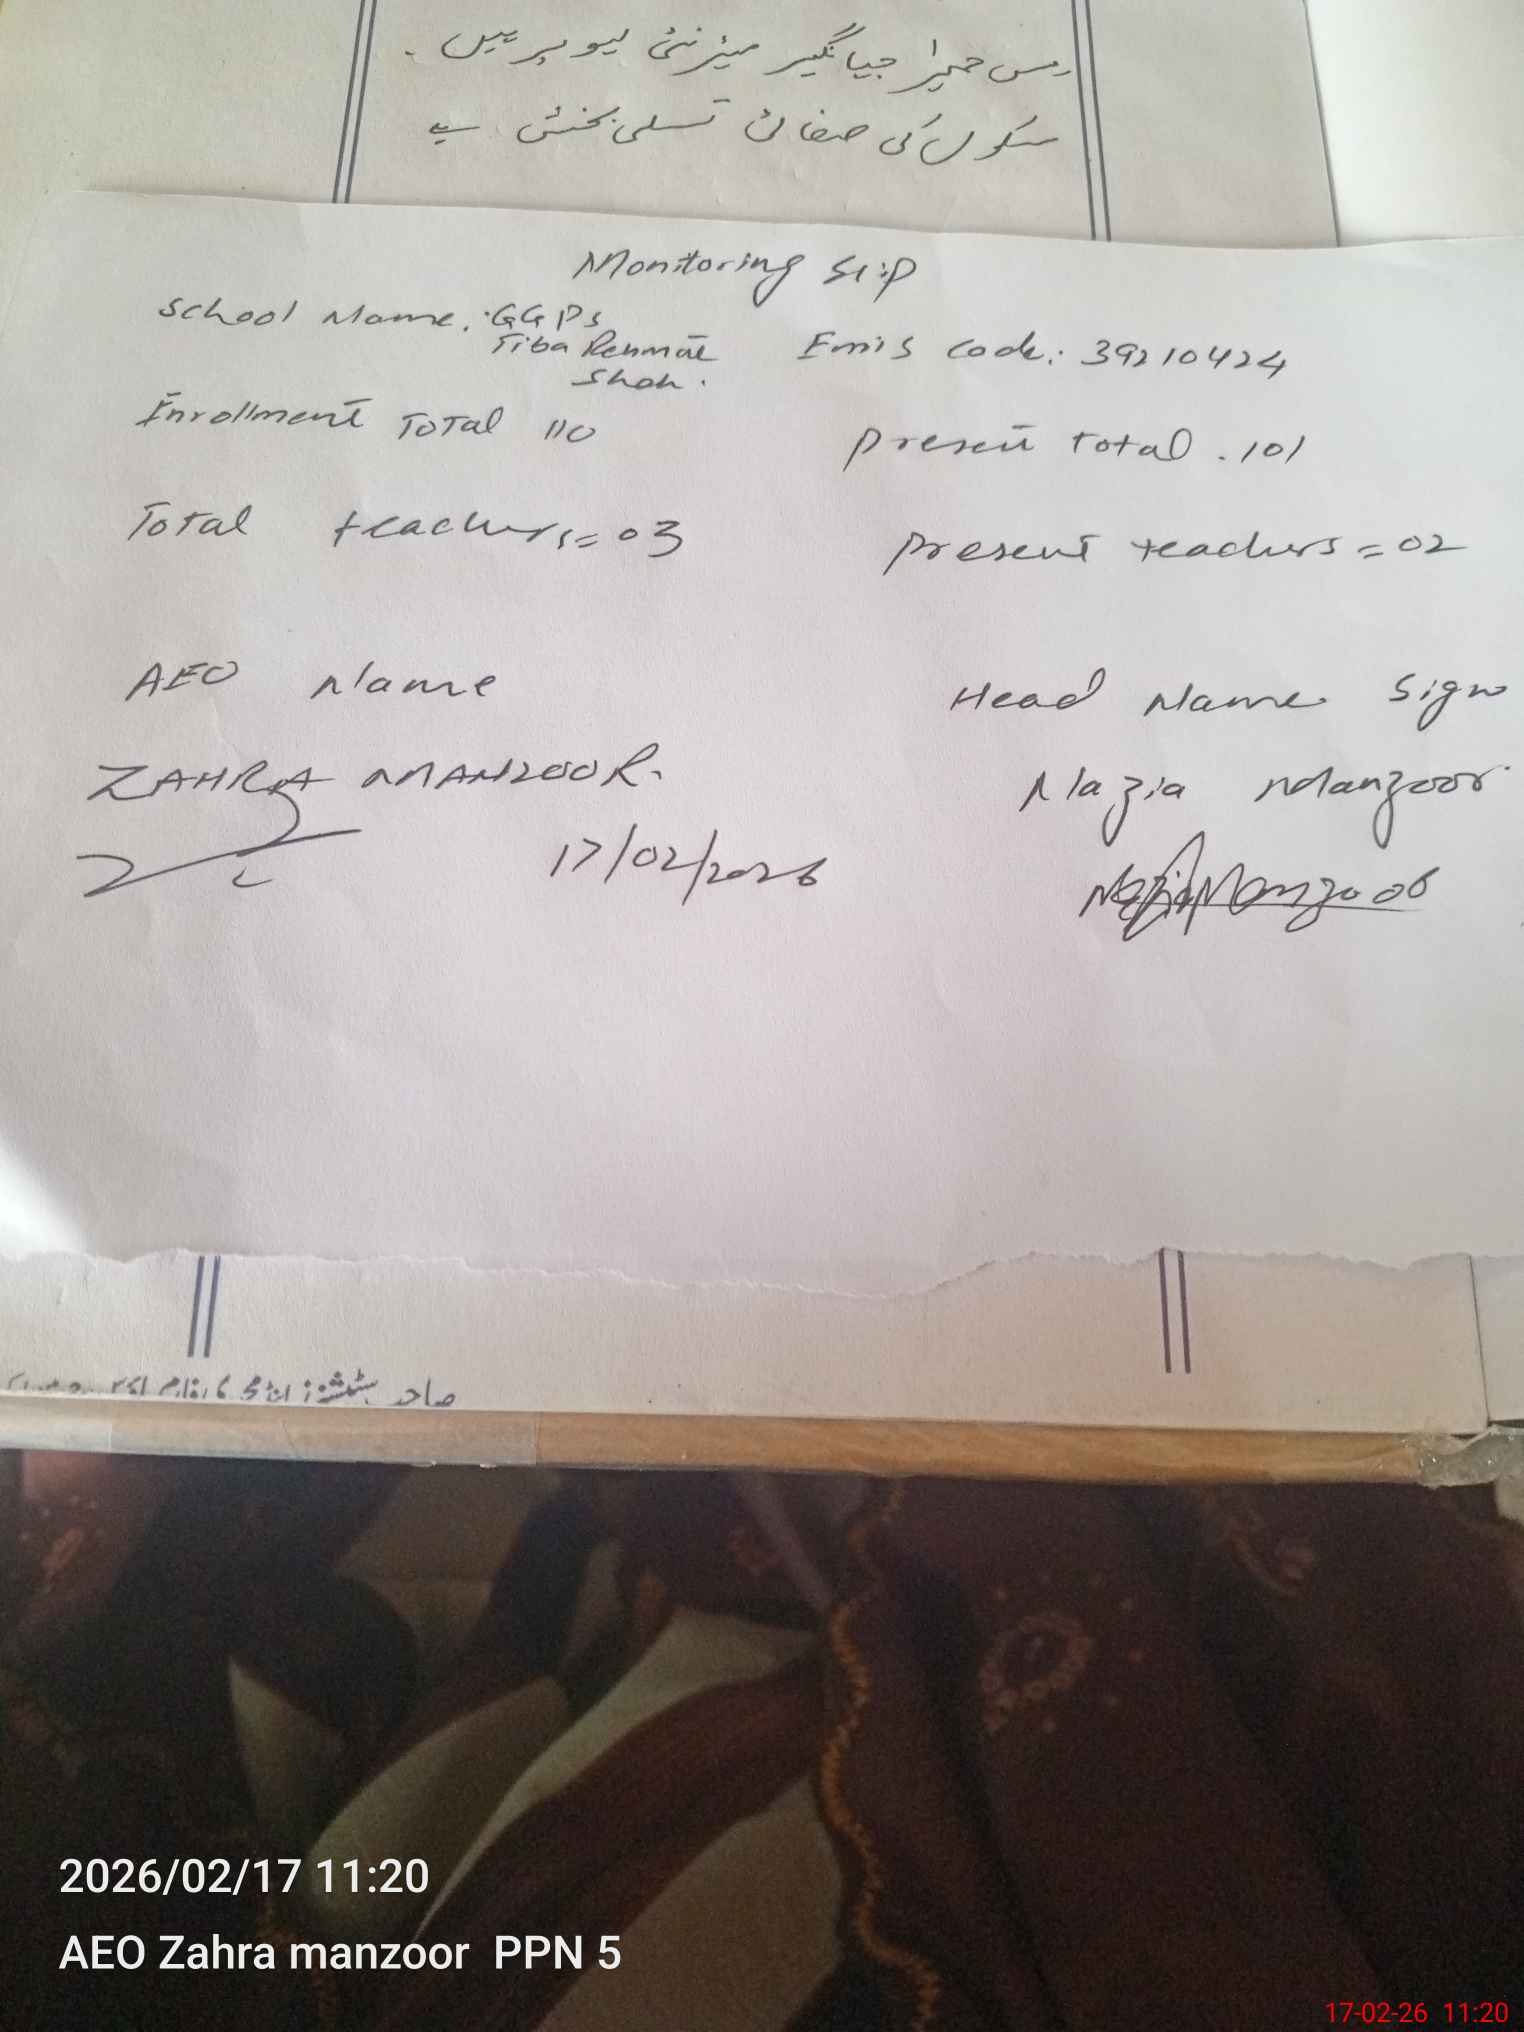 مس حمیرا جہانگیر میٹرنٹی لیو پر ہیں۔
سکول کی صفائی تسلی بخش ہے
Monitoring Slip
School Name. GGPS
Tiba Rehmat
Shah.
Emis Code: 39210424
Enrollment Total 110
Present total . 101
Total teachers = 03
Present teachers = 02
AEO Name
Head Name Sign
ZAHRA MANZOOR.
Nazia Manzoor.
17/02/2026
Nazia Manzoor
2026/02/17 11:20
AEO Zahra manzoor PPN 5
17-02-26 11:20